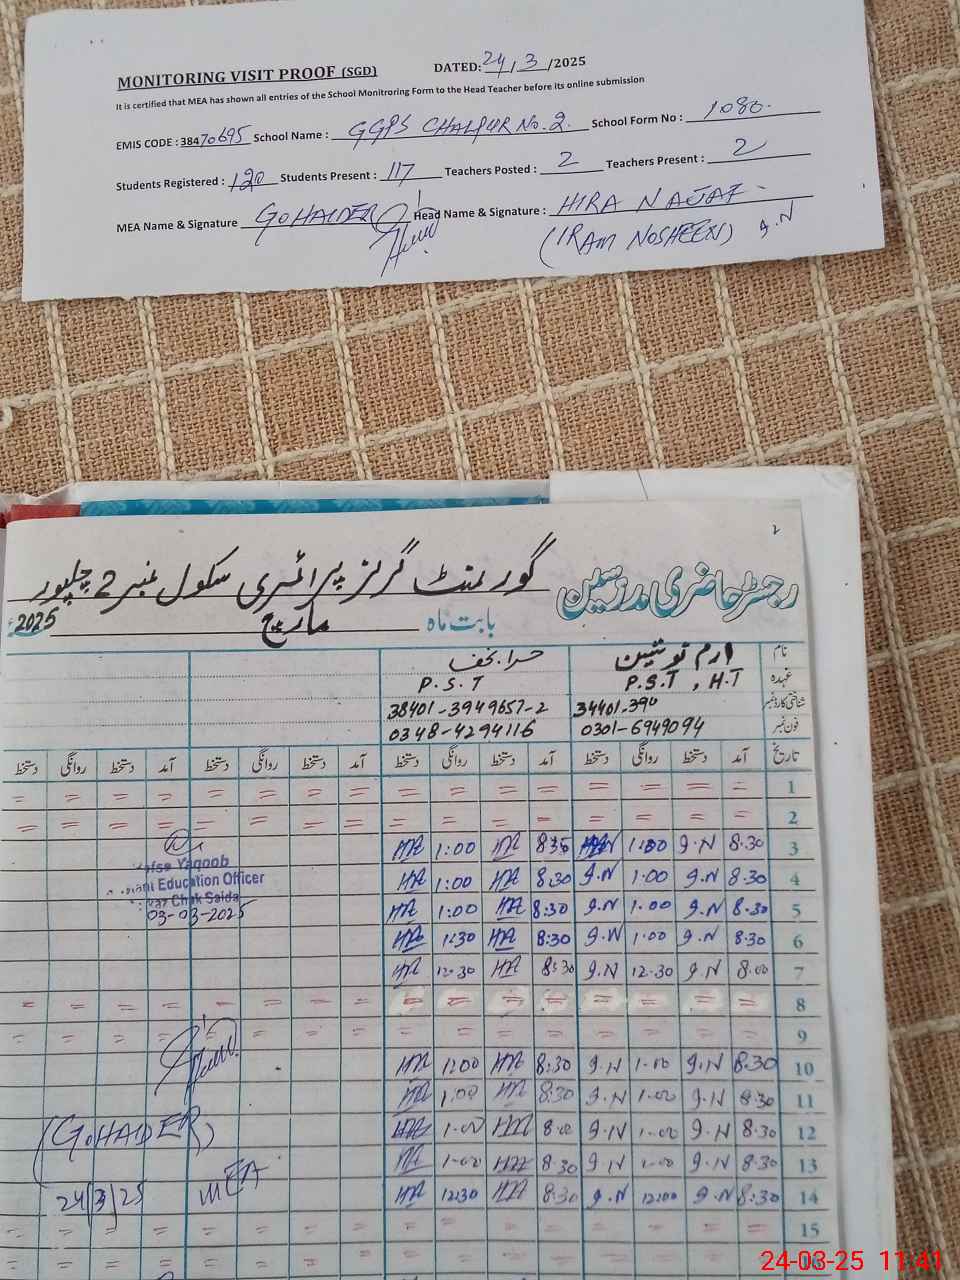 MONITORING VISIT PROOF (SGD) DATED: 24/3/2025
It is certified that MEA has shown all entries of the School Monitroring Form to the Head Teacher before its online submission
EMIS CODE : 38470695 School Name : GGPS CHALPUR No. 2 School Form No : 1080.
Students Registered : 120 Students Present : 117 Teachers Posted : 2 Teachers Present : 2
MEA Name & Signature G. HAIDER Head Name & Signature : HIRA NAJAF
(IRAM NOSHEEN) I.N
2
رجسٹر حاضری مدرسین گورنمنٹ گرلز پرائمری سکول نمبر 2 چلپور
بابت ماہ مارچ 2025ء
نام ارم نوشین حرا نجف
عہدہ P.S.T , H.T P.S.T
شناختی کارڈ نمبر 34401-390 38401-3949657-2
فون نمبر 0301-6949094 0348-4294116
تاریخ آمد دستخط روانگی دستخط آمد دستخط روانگی دستخط آمد دستخط روانگی دستخط آمد دستخط روانگی دستخط
1 = = = = = = = = = = = = = = = =
2 = = = = = = = = = = = = = = = =
3 8.30 I.N 1:00 8:35 HN 1:00 HN
4 8.30 I.N 1.00 I.N 8:30 HN 1:00 HN
5 8.30 I.N 1.00 I.N 8:30 HN 1:00 HN
6 8.30 I.N 1.00 I.N 8:30 HN 1:30 HN
7 8.00 I.N 12.30 I.N 8:30 HN 12:30 HN
Yaqoob
Education Officer
Chak Saida
03-03-2025
8 = = = = = = = = = = = = = = = =
9 = = = = = = = = = = = = = = = =
10 8.30 I.N 1.00 I.N 8:30 HN 1:00 HN
11 8.30 I.N 1.00 I.N 8:30 HN 1:00 HN
12 8.30 I.N 1.00 I.N 8.00 HN 1.00 HN
13 8.30 I.N 1.00 I.N 8.30 HN 1.00 HN
14 8:30 I.N 12:00 I.N 8:30 HN 12:30 HN
(G. HAIDER)
24/3/25 MEA
15 = = = = = = = = = = = = = = = =
24-03-25 11:41